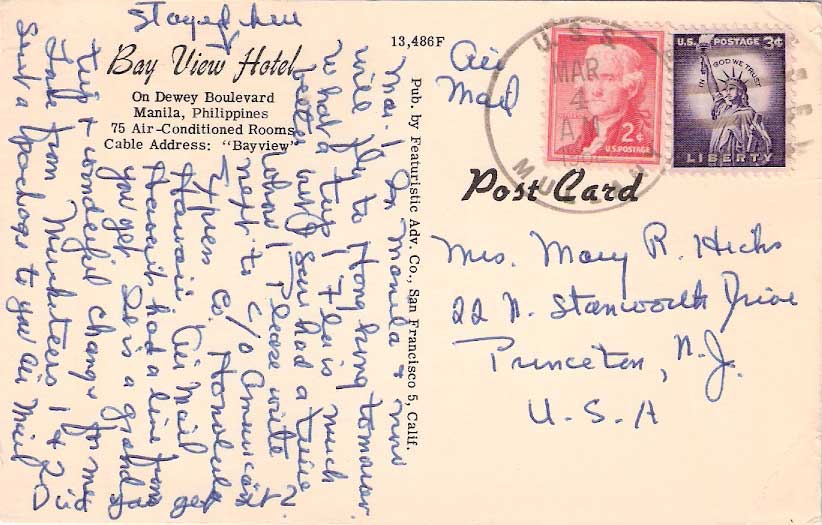 Stayed here
Bay View Hotel
On Dewey Boulevard
Manila, Philippines
75 Air-Conditioned Rooms
Cable Address: "Bayview"
13,486F
Pub. by Featuristic Adv. Co., San Francisco 5, Calif.
Mar. 1 In Manila & now
will fly to Hong Kong tomorrow.
What a trip! Flo is much
better had a time
Please write
next to c/o American
Express Co. Honolulu
Hawaii Air Mail
Haven't had a line from
you yet is a grand
trip & wonderful change for me
from Musketeers 1 & 2
Sent a package to you air mail
Air
Mail
U.S.S.
MAR
4
A.M.
2¢
U.S. POSTAGE
U.S. POSTAGE 3¢
IN GOD WE TRUST
LIBERTY
Post Card
Mrs. Mary R. Hicks
22 N. Stanworth Drive
Princeton, N.J.
U.S.A